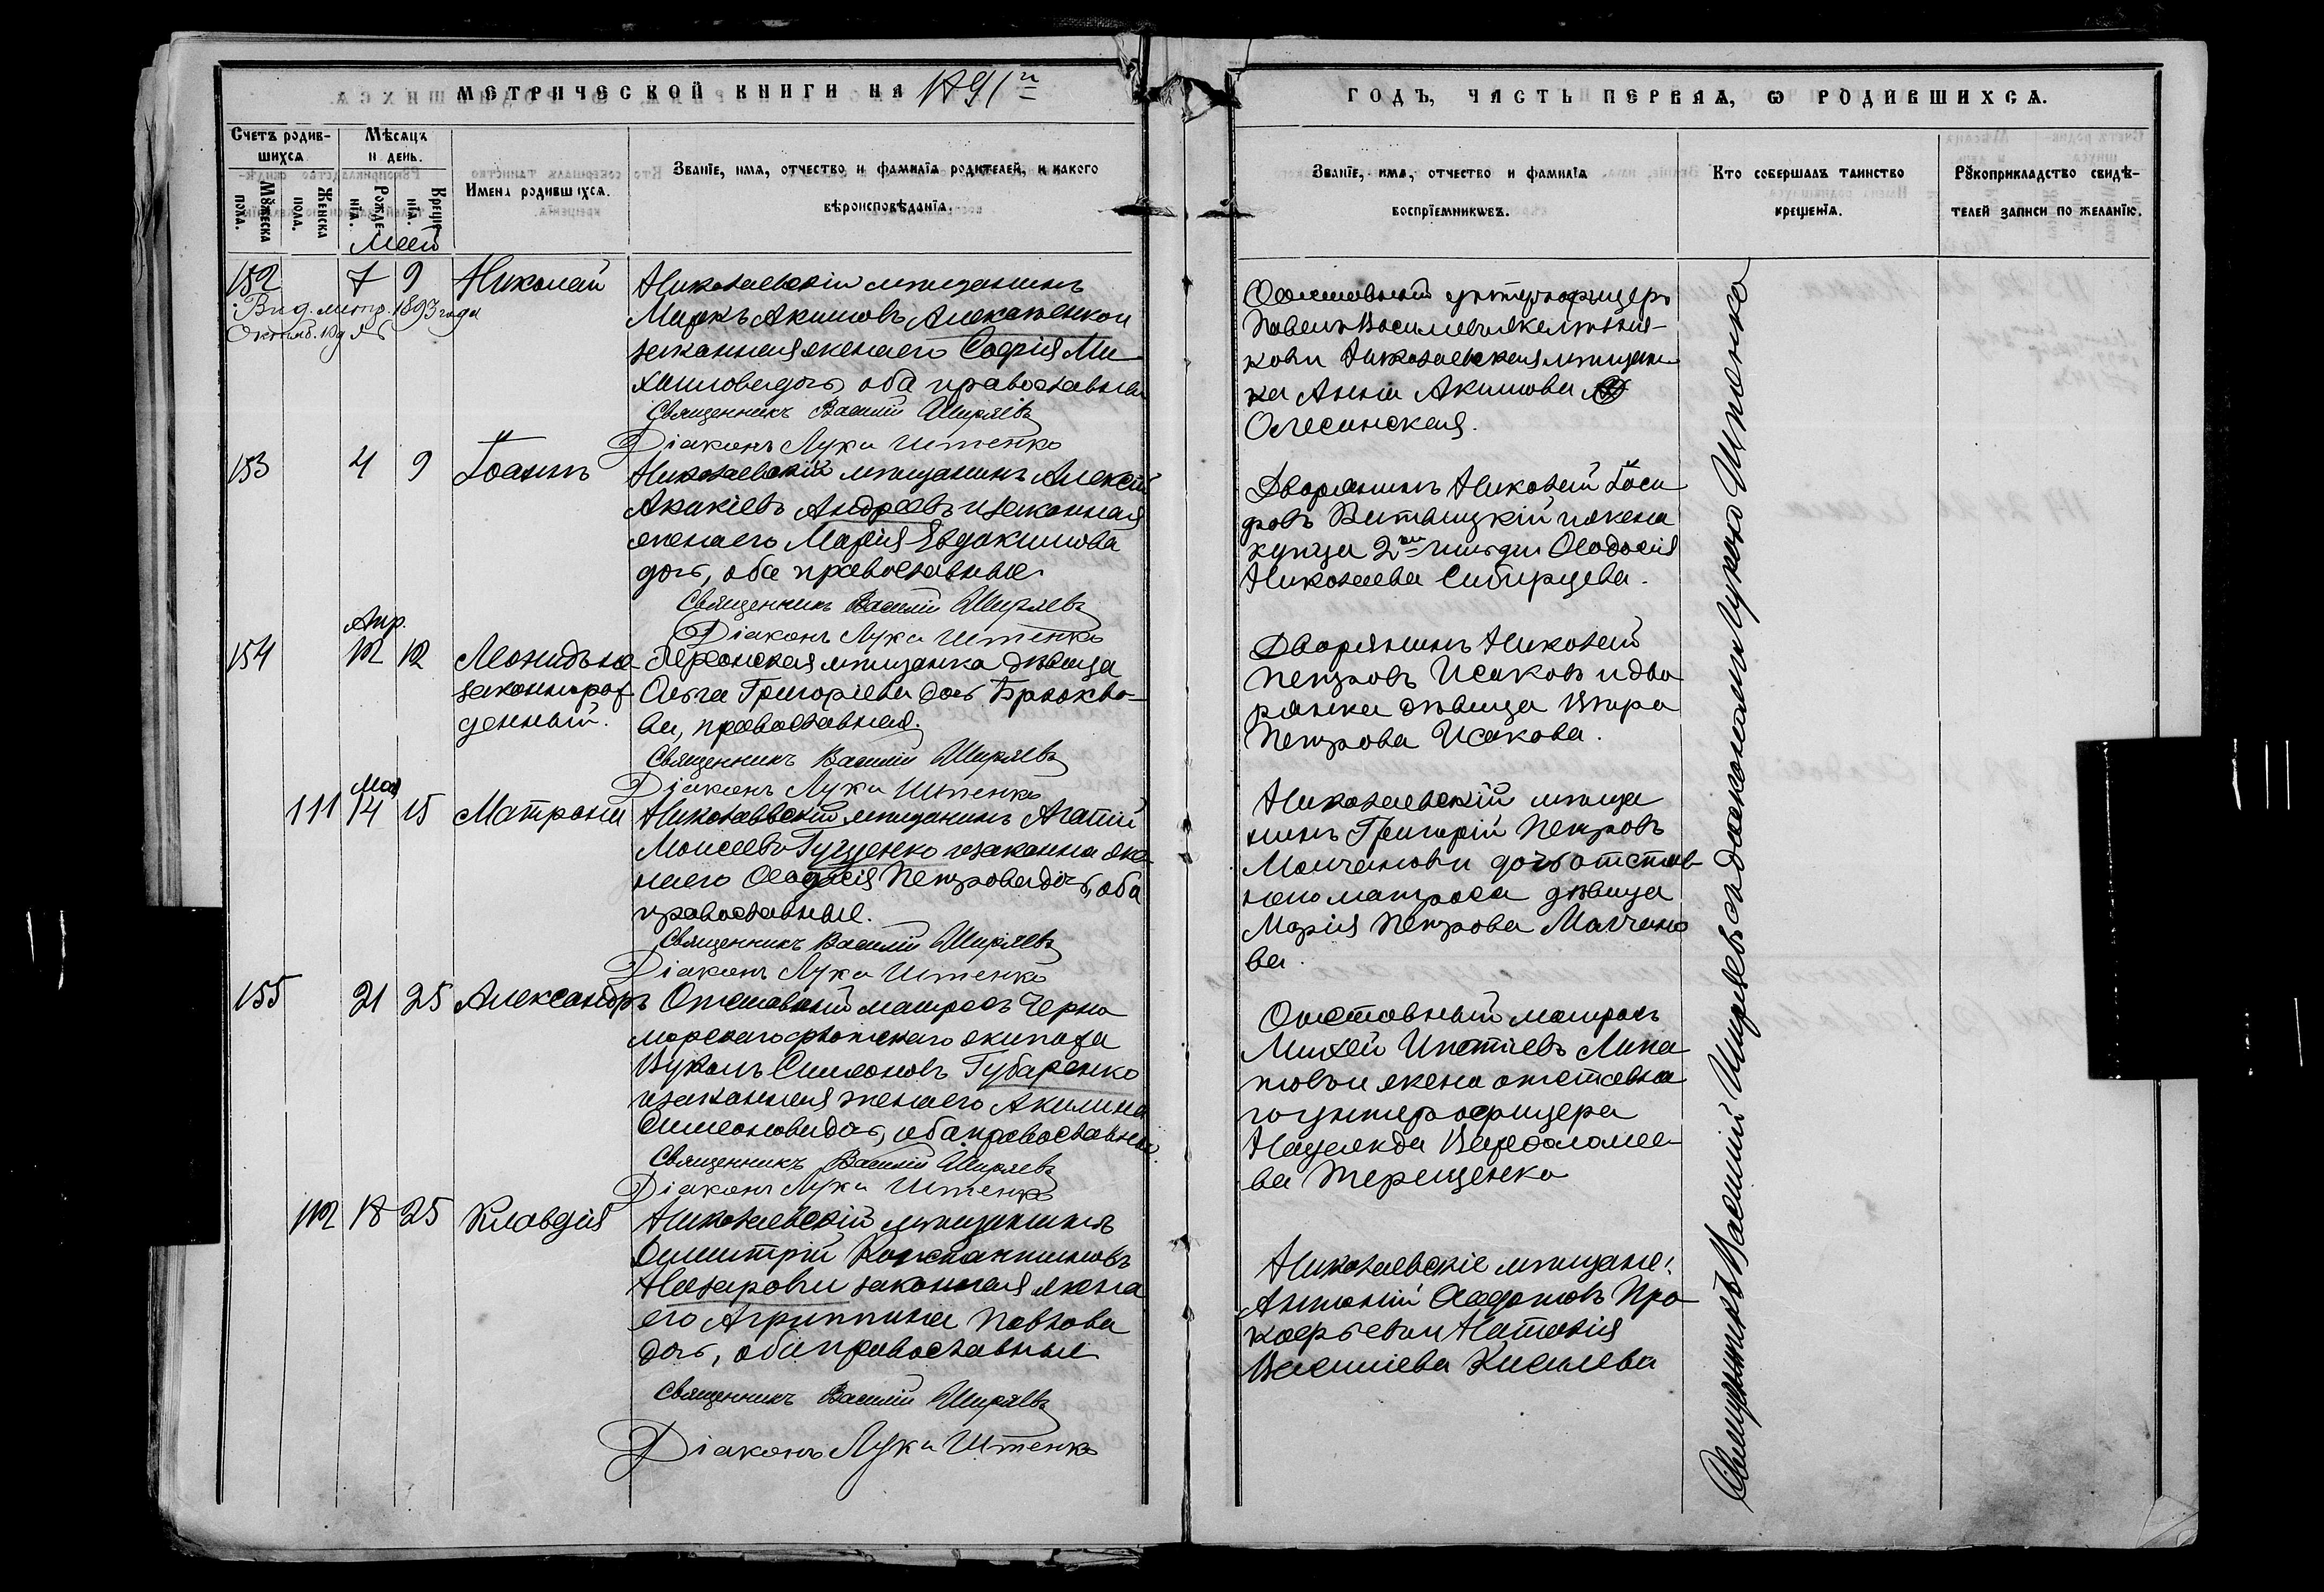 МЕТРИЧЕСКОЙ КНИГИ НА 1891й
ГОДЪ, ЧАСТЬ ПЕРВАЯ, Ѡ РОДИВШИХСЯ.
Счетъ родив-
шихся
Мѣсяцъ
и день.
Мꙋжеска
пола.
Женска
пола.
Рожде-
нїя.
Креще-
нїя.
Имена родившихся.
Званїе, имя, отчество и фамилїя родителей, и какого
вѣроисповѣданїя.
Званїе, имя, отчество и фамилїя
воспрїемникѡвъ.
Кто совершалъ таинство
крещенїя.
Рꙋкоприкладство свидѣ-
телей записи по желанїю.
Май
152 7 9 Николай
Выд. метр. 1893 года
Николаевскій мѣщанинъ
Маркъ Акимовъ
законная жена его Софія Ми
оба православные
Священникъ Василій Ширяевъ
Діаконъ Лука Штенко
унтеръофицеръ
Павелъ
Николаевская мѣщан
ка Анна Акимова
Олесинская.
153 4 9 Іоаннъ
Николаевскій мѣщанинъ Алексѣй
Акакіевъ Андреевъ и законная
жена его Марія Евдокимова
дочь, оба православные
Священникъ Василій Ширяевъ
Діаконъ Лука Штенко
Дворянинъ Николай Іоси
фовъ Витвицкій и жена
купца 2ой гильдіи Ѳеодосія
Николаева Сибирцева.
Апр.
154 12 12 Леонидъ не
законнорож
денный.
Херсонская мѣщанка дѣвица
Ольга Григоріева дочь Брюкво-
ва, православная.
Священникъ Василій Ширяевъ
Діаконъ Лука Штенко
Дворянинъ Николай
Петровъ Исаковъ и дво
рянка дѣвица Вѣра
Петрова Исакова.
Май
111 14 15 Матрона
Николаевскій мѣщанинъ Агапій
Моисеевъ Гуценко и законна же
на его Ѳеодосія Петрова дочь, оба
православные.
Священникъ Василій Ширяевъ
Діаконъ Лука Штенко
Николаевскій мѣща
нинъ Григорій Петровъ
Молчановъ и дочь отстав
ного матроса дѣвица
Марія Петрова Молчано
ва.
155 21 25 Александръ
Отставный матросъ Черно
морского флотскаго экипажа
Вуколъ Симеоновъ Губаренко
и законная жена его Акилина
Симеонова дочь, оба православные.
Священникъ Василій Ширяевъ
Діаконъ Лука Штенко
Отставный матросъ
Михей Игнатіевъ Липа
товъ и жена отставна
го унтерофицера
Надежда Варфоломее
ва Терещенко
112 18 25 Клавдія
Николаевскій мѣщанинъ
Димитрій Константиновъ
Назаровъ и законная жена
его Агриппина Павлова
дочь, оба православные
Священникъ Василій Ширяевъ
Діаконъ Лука Штенко
Николаевскіе мѣщане:
Антоній Ѳедотовъ Про
кофьевъ и Наталія
Василіева Киселева
Священникъ Василій Ширяевъ съ діакономъ Лукою Штенко